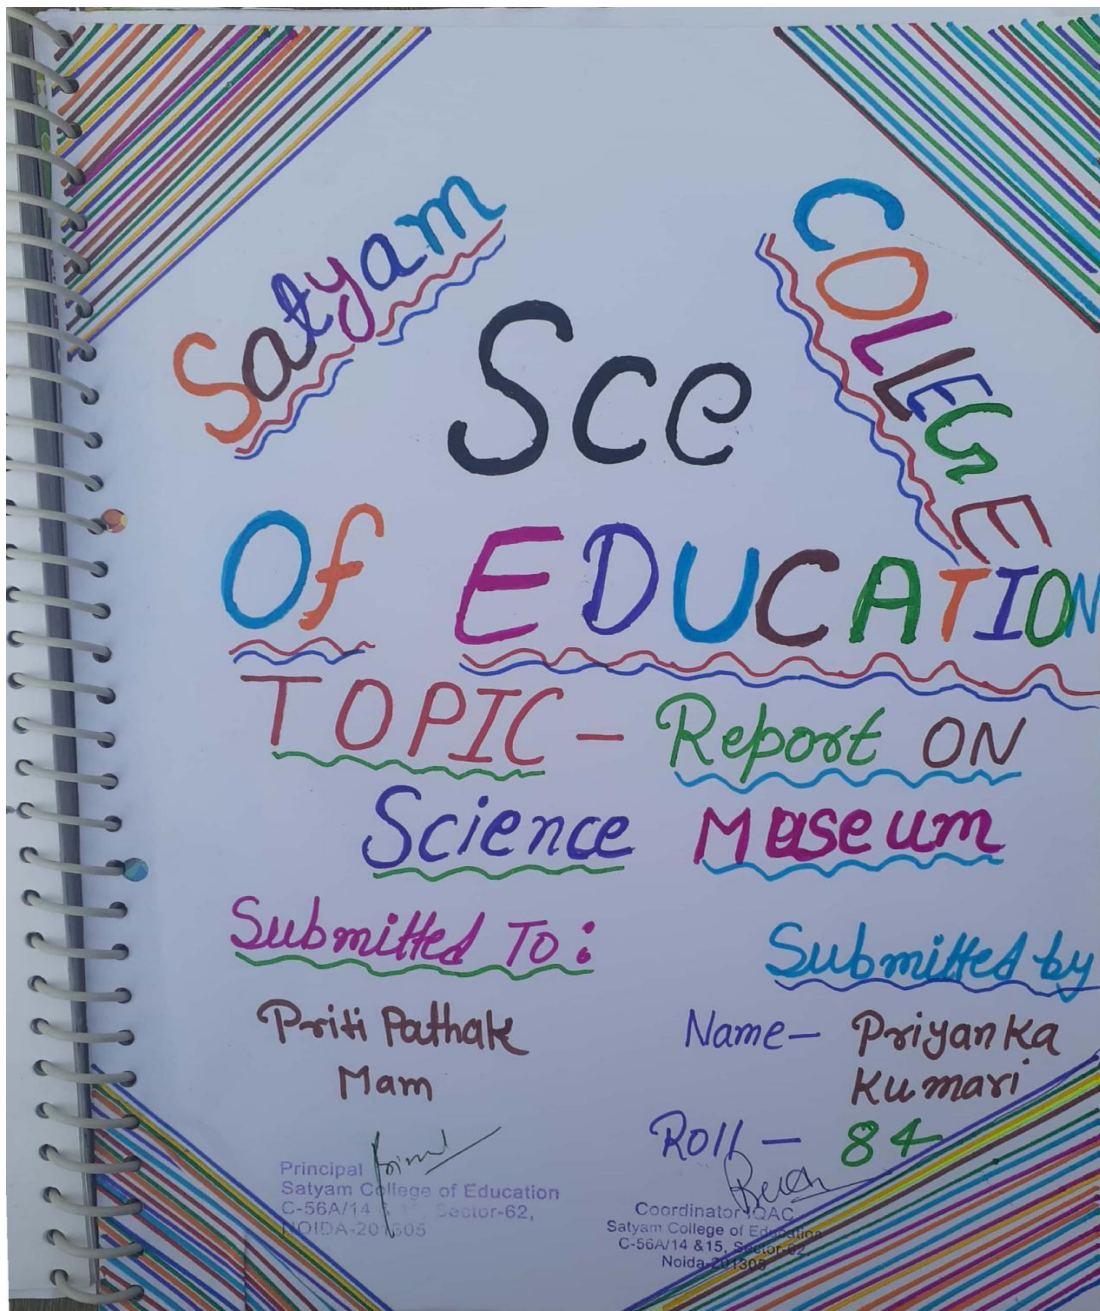 Satyam COLLEGE
Sce
Of EDUCATION
TOPIC - Report ON
Science Museum
Submitted To:
Priti Pathak
Mam
Submitted by
Name- Priyanka
Kumari
ROll - 84
Principal
Satyam College of Education
C-56A/14 & 15, Sector-62,
NOIDA-201305
Coordinator IQAC
Satyam College of Education
C-56A/14 &15, Sector-62,
Noida-201305